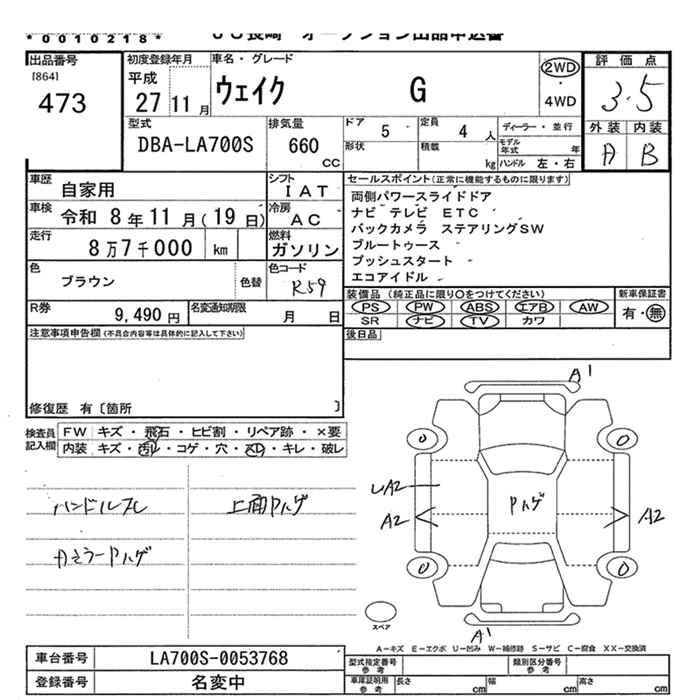 *0010218*
ＪＵ長崎 オークション出品申込書
出品番号
[864]
473
初度登録年月
平成
27 11 月
車名・グレード
ウェイク G
2WD
・
4WD
評価点
3.5
外装 内装
A B
型式
DBA-LA700S
排気量
660
cc
ドア 5
定員 4 人
形状
積載 kg
ディーラー・並行
モデル年式 年
ハンドル 左・右
車歴 自家用
シフト IAT
車検 令和 8年11月(19日)
冷房 AC
走行 8万7千000 km
燃料 ガソリン
色 ブラウン 色替
色コード R59
R券 9,490円
名変通知期限 月 日
セールスポイント(正常に機能するものに限ります)
両側パワースライドドア
ナビ テレビ ETC
バックカメラ ステアリングSW
ブルートゥース
プッシュスタート
エコアイドル
装備品(純正品に限り○をつけてください)
PS PW ABS エアB AW
SR ナビ TV カワ
新車保証書
有・無
後日品
注意事項申告欄(不具合内容等は具体的に記入して下さい)
修復歴 有〔箇所 〕
検査員
記入欄
FW キズ・飛石・ヒビ割・リペア跡・×要
内装 キズ・汚レ・コゲ・穴・スレ・キレ・破レ
ハンドルスレ
上面Pハゲ
カモラーPハゲ
A1
LA2
A2
Pハゲ
A2
A1
スペア
A－キズ E－エクボ U－凹み W－補修跡 S－サビ C－腐食 XX－交換済
車台番号 LA700S-0053768
登録番号 名変中
型式指定番号
参考
類別区分番号
参考
車庫証明用
参考
長さ cm
幅 cm
高さ cm